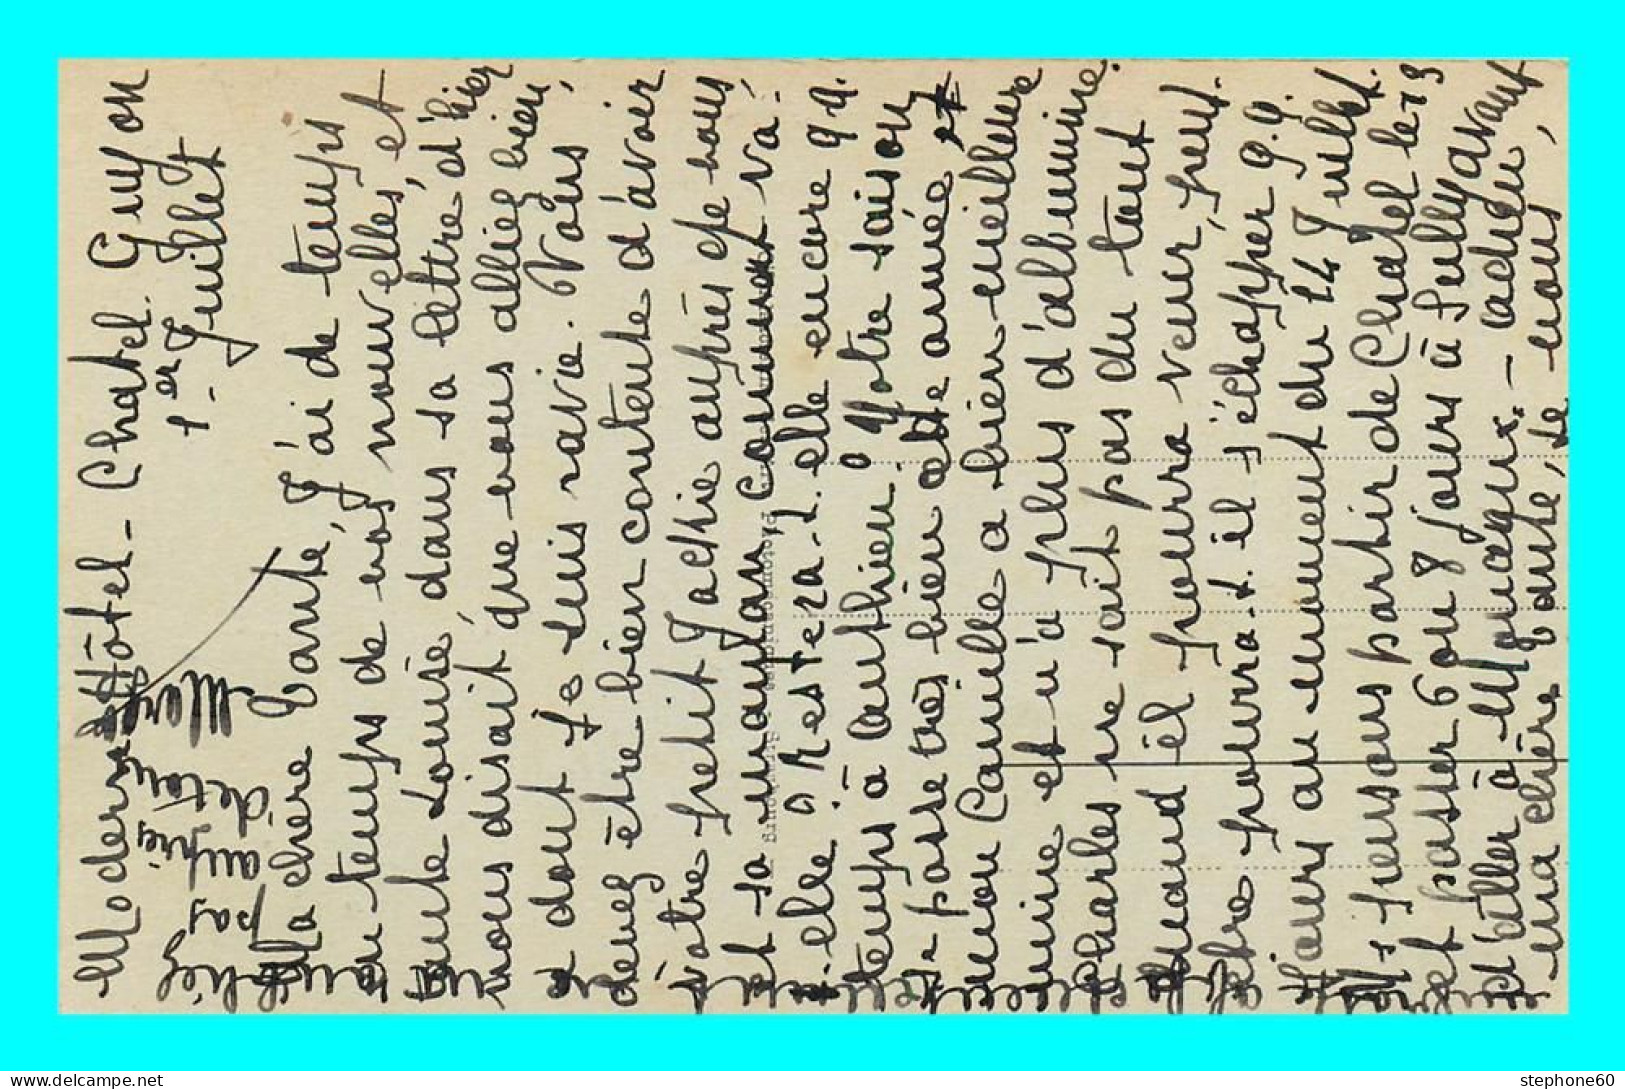 Moderne Hôtel - Chatel. Guyon
1er Juillet
Ma chère Tante, J'ai de temps
au temps de vos nouvelles, et
tante Louise, dans sa lettre d'hier
nous disait que vous alliez bien,
ce dont je suis ravie. Vous
devez être bien contente d'avoir
votre petit Jackie auprès de vous
et sa maman comment va-
t-elle? Restera-t-elle encore qq.
temps à Authieu? Notre saison
se passe très bien cette année et
mon Camille a bien meilleure
mine et n'a plus d'albumine.
Charles ne sait pas du tout
quand il pourra venir, peut
être pourra-t-il s'échapper q.q.
jours au moment du 14 Juillet.
Ns pensons partir de Chatel le 23
et passer 6 ou 8 jours à Sully avant
d'aller à - adieu
ma chère tante, de nous,
pas auprès de toi
stephone60